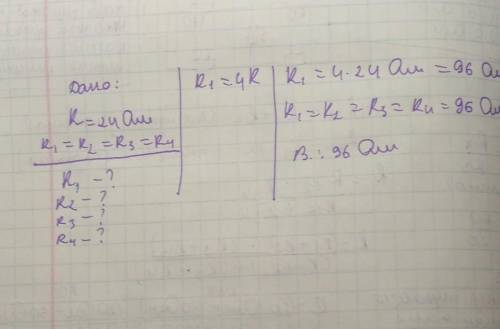 Дано:
R = 24 Ом
R1 = R2 = R3 = R4
R1 - ?
R2 - ?
R3 - ?
R4 - ?
R1 = 4R
R1 = 4·24 Ом = 96 Ом
R1 = R2 = R3 = R4 = 96 Ом
В.: 96 Ом